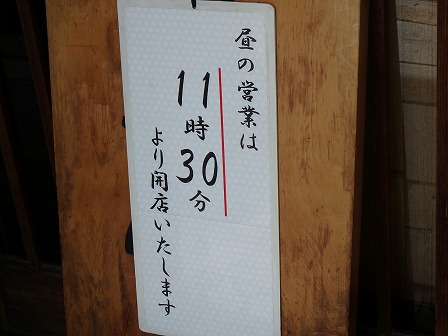 昼の営業は
11時30分
より開店いたします